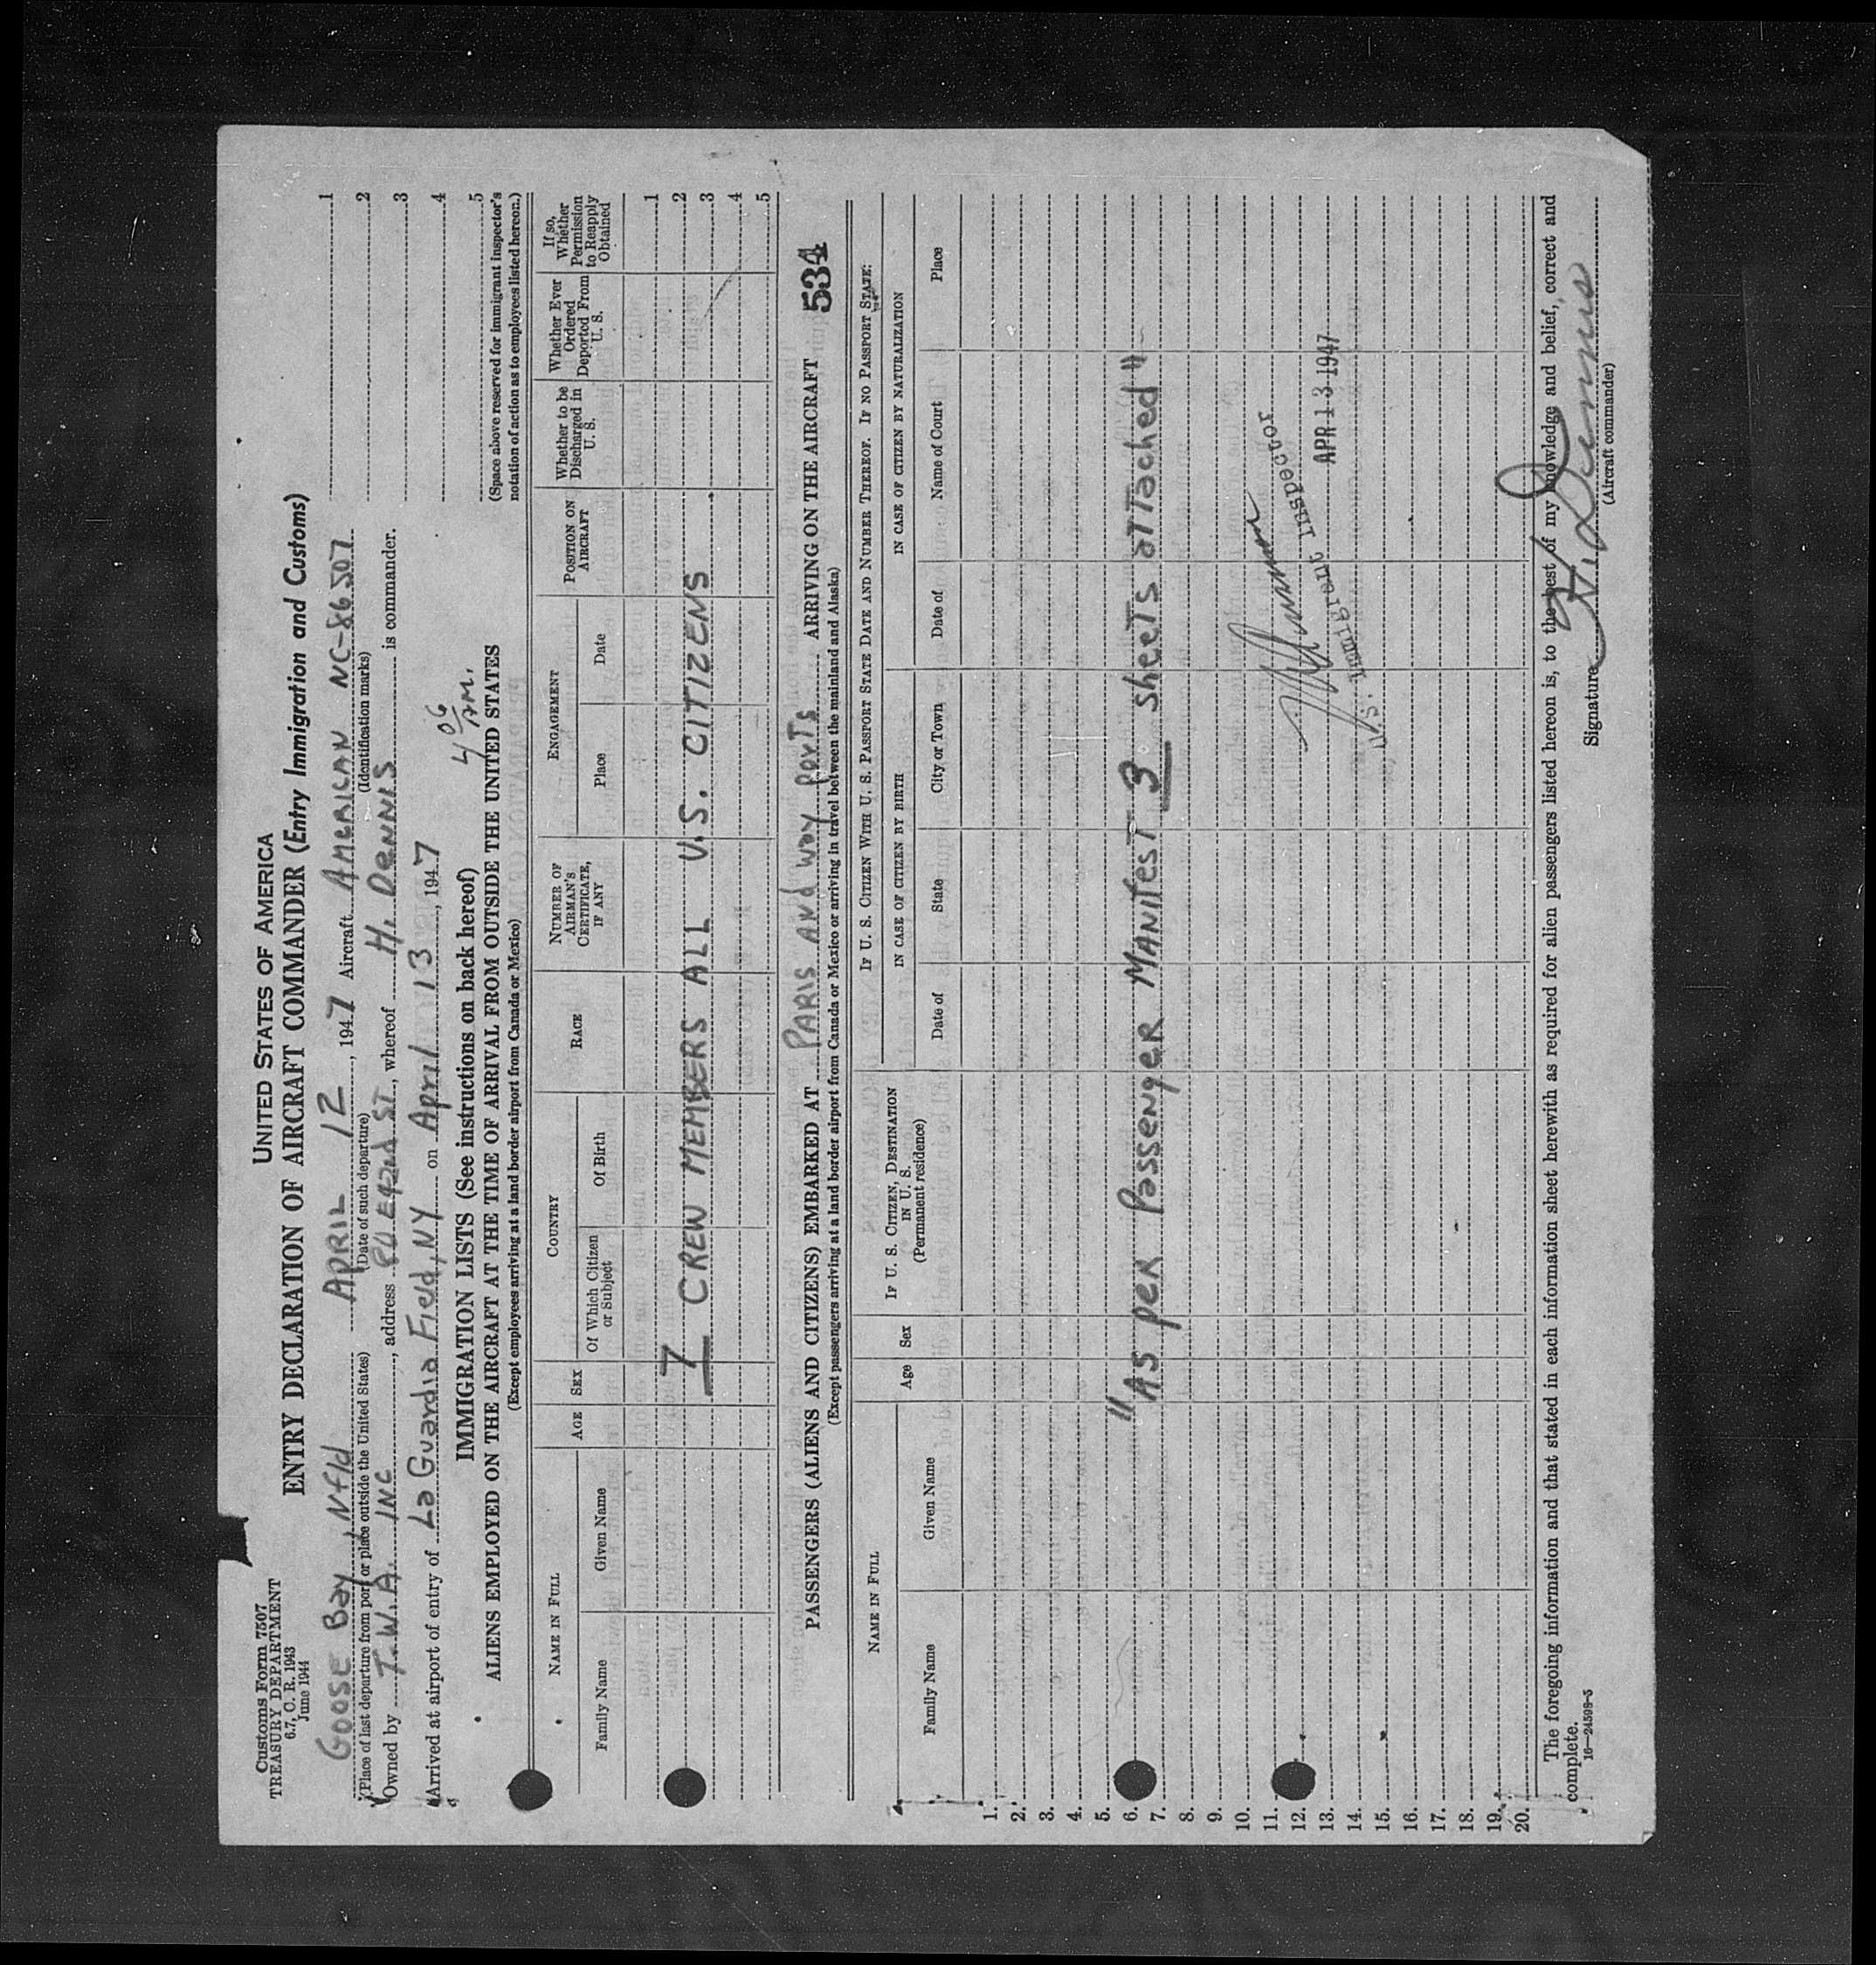 Customs Form 7507
TREASURY DEPARTMENT
6.7, C. R. 1943
June 1944
UNITED STATES OF AMERICA
ENTRY DECLARATION OF AIRCRAFT COMMANDER (Entry Immigration and Customs)
Goose Bay, Nfld APRIL 12, 1947 Aircraft AMERICAN NC-86507
(Place of last departure from port or place outside the United States) (Date of such departure) (Identification marks)
Owned by T.W.A. INC, address 80 E42nd ST., whereof H. DENNIS is commander.
Arrived at airport of entry of La Guardia Field, NY on April 13, 1947
4 06 AM.
1
2
3
4
5
(Space above reserved for immigrant inspector's
notation of action as to employees listed hereon.)
IMMIGRATION LISTS (See instructions on back hereof)
ALIENS EMPLOYED ON THE AIRCRAFT AT THE TIME OF ARRIVAL FROM OUTSIDE THE UNITED STATES
(Except employees arriving at a land border airport from Canada or Mexico)
NAME IN FULL
Family Name Given Name
AGE
SEX
COUNTRY
Of Which Citizen or Subject
Of Birth
RACE
NUMBER OF AIRMAN'S CERTIFICATE, IF ANY
ENGAGEMENT
Place Date
POSITION ON AIRCRAFT
Whether to be Discharged in U. S.
Whether Ever Ordered Deported From U. S.
If so, Whether Permission to Reapply Obtained
1
2
3
4
5
7 CREW MEMBERS ALL U.S. CITIZENS
PASSENGERS (ALIENS AND CITIZENS) EMBARKED AT PARIS AND WAY PORTS ARRIVING ON THE AIRCRAFT 534
(Except passengers arriving at a land border airport from Canada or Mexico or arriving in travel between the mainland and Alaska)
NAME IN FULL
Family Name Given Name
Age
Sex
IF U. S. CITIZEN, DESTINATION IN U. S.
(Permanent residence)
IF U. S. CITIZEN WITH U. S. PASSPORT STATE DATE AND NUMBER THEREOF. IF NO PASSPORT STATE:
IN CASE OF CITIZEN BY BIRTH
Date of State City or Town
IN CASE OF CITIZEN BY NATURALIZATION
Date of Name of Court Place
1.
2.
3.
4.
5.
6.
7.
8.
9.
10.
11.
12.
13.
14.
15.
16.
17.
18.
19.
20.
"As per Passenger Manifest 3 sheets attached"
U.S. Immigrant Inspector
APR 13 1947
The foregoing information and that stated in each information sheet herewith as required for alien passengers listed hereon is, to the best of my knowledge and belief, correct and
complete.
16—24598-5
Signature H. Dennis
(Aircraft commander)